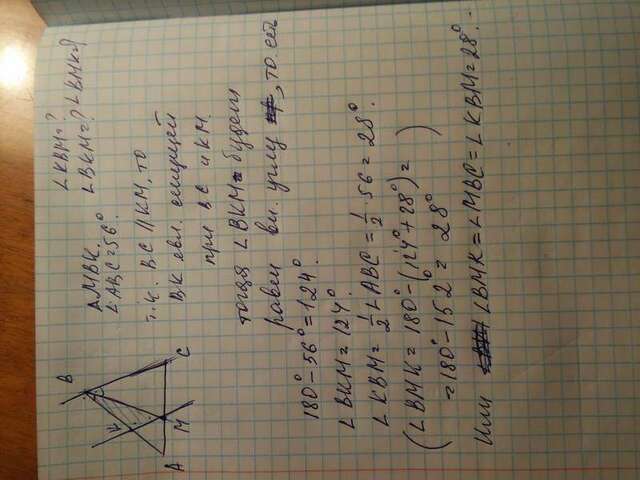 ∠KBM=?
∠BKM=? ∠BMK=?
△MBK.
∠ABC=56°.
B
K
A
M
C
т.к. BC || KM, то
BK явл. секущей
при BC и KM.
тогда ∠BKM будет
равен вн. углу, то есть
180°-56°=124°.
∠BKM=124°.
∠KBM=1/2∠ABC=1/2·56=28°.
(∠BMK=180°-(124°+28°)=
=180°-152°=28°)
Или ∠BMK=∠MBC=∠KBM=28°.